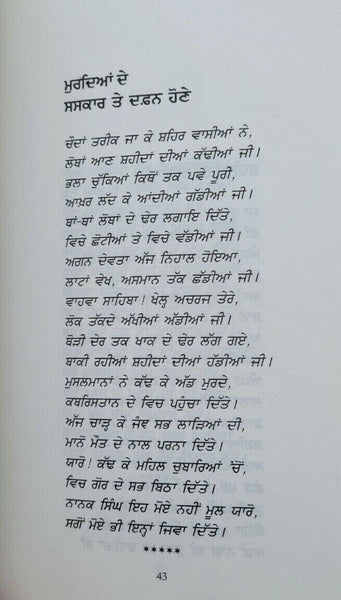 ਮੁਰਦਿਆਂ ਦੇ
ਸਸਕਾਰ ਤੇ ਦਫ਼ਨ ਹੋਣੇ
ਚੌਦਾਂ ਤਰੀਕ ਜਾ ਕੇ ਸ਼ਹਿਰ ਵਾਸੀਆਂ ਨੇ,
ਲੋਥਾਂ ਆਣ ਸ਼ਹੀਦਾਂ ਦੀਆਂ ਕੱਢੀਆਂ ਜੀ।
ਭਲਾ ਚੁੱਕਿਆਂ ਕਿਥੋਂ ਤਕ ਪਵੇ ਪੂਰੀ,
ਆਖ਼ਰ ਲੱਦ ਕੇ ਆਂਦੀਆਂ ਗੱਡੀਆਂ ਜੀ।
ਥਾਂ-ਥਾਂ ਲੋਥਾਂ ਦੇ ਢੇਰ ਲਗਾਇ ਦਿੱਤੇ,
ਵਿਚੇ ਛੋਟੀਆਂ ਤੇ ਵਿਚੇ ਵੱਡੀਆਂ ਜੀ।
ਅਗਨ ਦੇਵਤਾ ਅੱਜ ਨਿਹਾਲ ਹੋਇਆ,
ਲਾਟਾਂ ਵੇਖ, ਅਸਮਾਨ ਤੱਕ ਛੱਡੀਆਂ ਜੀ।
ਵਾਹਵਾ ਸਾਹਿਬਾ! ਖੇਲ੍ਹ ਅਚਰਜ ਤੇਰੇ,
ਲੋਕ ਤਕਦੇ ਅੱਖੀਆਂ ਅੱਡੀਆਂ ਜੀ।
ਥੋੜੀ ਦੇਰ ਤਕ ਖਾਕ ਦੇ ਢੇਰ ਲੱਗ ਗਏ,
ਬਾਕੀ ਰਹੀਆਂ ਸ਼ਹੀਦਾਂ ਦੀਆਂ ਹੱਡੀਆਂ ਜੀ।
ਮੁਸਲਮਾਨਾਂ ਨੇ ਕੱਢ ਕੇ ਅੱਡ ਮੁਰਦੇ,
ਕਬਰਿਸਤਾਨ ਦੇ ਵਿਚ ਪਹੁੰਚਾ ਦਿੱਤੇ।
ਅੱਜ ਚਾੜ੍ਹ ਕੇ ਜੰਞ ਸਭ ਲਾੜਿਆਂ ਦੀ,
ਮਾਨੋ ਮੌਤ ਦੇ ਨਾਲ ਪਰਨਾ ਦਿੱਤੇ।
ਯਾਰੋ! ਕੱਢ ਕੇ ਮਹਿਲ ਚੁਬਾਰਿਆਂ 'ਚੋਂ,
ਵਿਚ ਗੋਰ ਦੇ ਸਭ ਬਿਠਾ ਦਿੱਤੇ।
ਨਾਨਕ ਸਿੰਘ ਇਹ ਮੋਏ ਨਹੀਂ ਮੂਲ ਯਾਰੋ,
ਸਗੋਂ ਮੋਏ ਭੀ ਇਨ੍ਹਾਂ ਜਿਵਾ ਦਿੱਤੇ।
*****
43